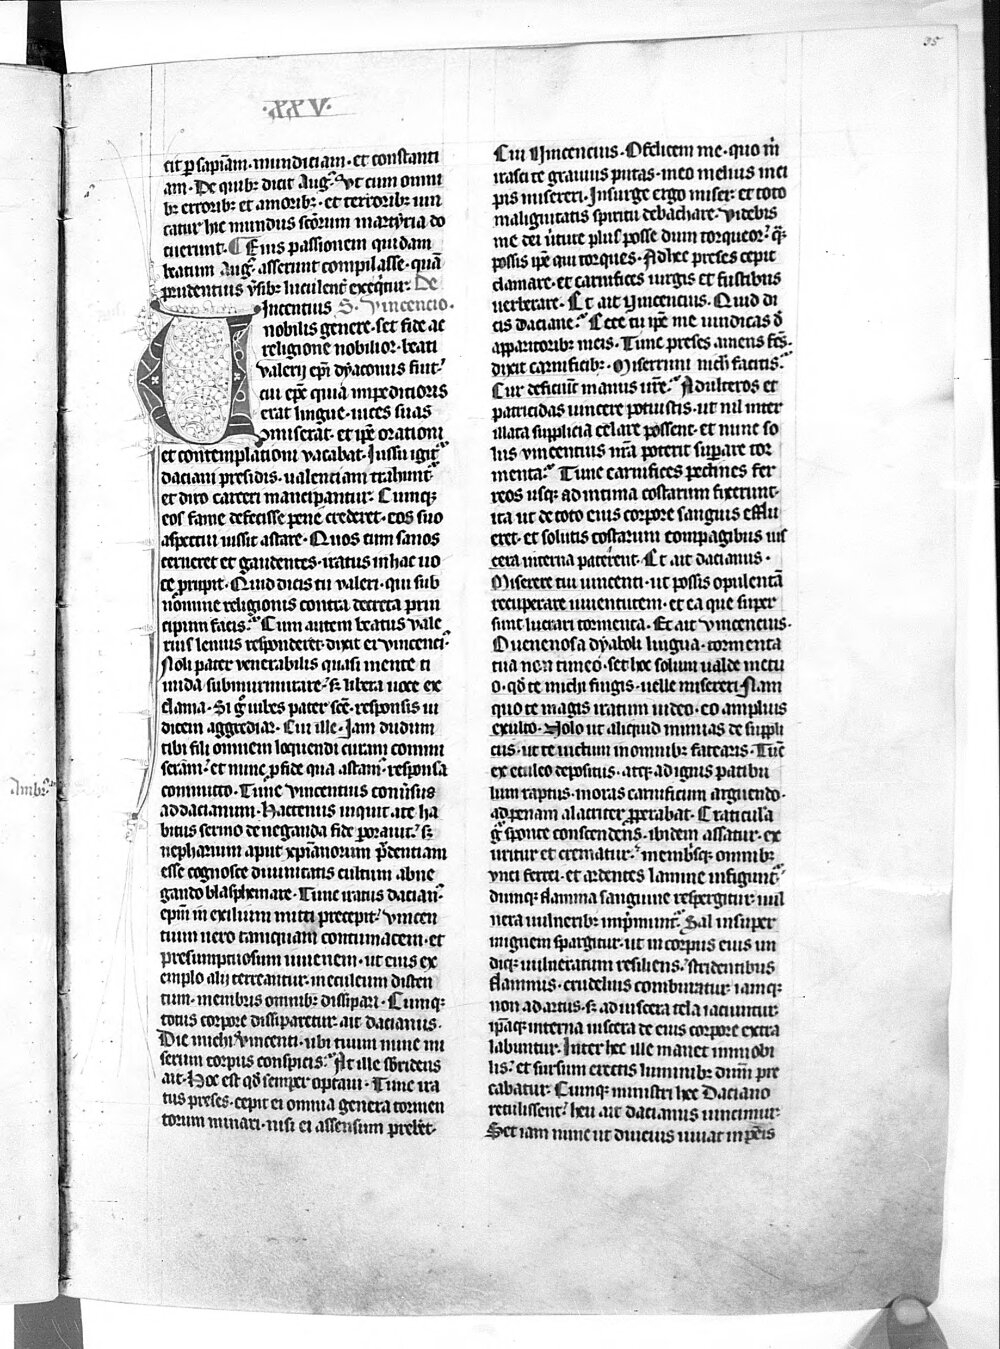 35
·XXV·
cit ꝑ sapiam· mundiciam· et constanti
am· De quibꝫ dicit Aug᷒· Vt cum omni
bꝫ erroribꝫ et amoribꝫ· et terroribꝫ uin
catur hic mundus scōrum martyria do
cuerunt· ¶ Eius passionem quidam
beatum Aug᷒· asserunt compilasse· quā
prudentius v̓sibꝫ luculent᷒ exeq̄tur· De
Vincentius S· Vincencio·
nobilis genere· set fide ac
religione nobilior· beati
valerij ep̄i dyaconus fuit·
cui ep̄c quia impeditioris
erat lingue· uices suas
9miserat· et ip̄e orationi
et contemplationi vacabat· Iussu igit᷒
daciani presidis· ualentiam trahunt᷒
et diro carceri mancipantur· Cumqꝫ
eos fame defecisse pene crederet· eos suo
aspectui iussit astare· Quos cum sanos
cerneret et gaudentes· iratus in hac uo
ce prupit· Quid dicis tu valeri· qui sub
nomine religionis contra decreta prin
cipum facis· Cum autem beatus vale
rius lenius responderet· dixit ei vincenti᷒·
Noli pater venerabilis quasi mente ti
mida submurmurare· sꝫ libera uoce ex
clama· Si g̊ iubes pater sc̄e· responsis iu
dicem aggrediar· Cui ille· Iam dudum
tibi fili omnem loquendi curam commi
seram· et nunc ꝓ fide qua astam᷒· responsa
committo· Tunc vincentius conu̓sus
ad dacianum· Hactenus inquit· a te ha
bitus sermo de neganda fide ꝑorauit· sꝫ
nepharium aput xp̄ianorum prudentiam
esse cognosce diuinitatis cultum abne
gando blasphemare· Tunc iratus dacian᷒·
ep̄m in exilium mitti precepit· vincen
tium uero tamquam contumacem· et
presumptuosum iuuenem· ut eius ex
emplo alij terreantur· in eculeum disten
tum· membris omnibꝫ dissipari· Cumqꝫ
totus corpore dissiparetur· ait dacianus·
Dic michi vincenti· ubi tuum nunc mi
serum corpus conspicis· At ille sbridens
ait· Hoc est qd̄ semper optaui· Tunc ira
tus preses· cepit ei omnia genera tormen
torum minari· nisi ei assensum preberet·
Cui Vincencius· O felicem me· quo m̄
irasci te grauius putas· in eo melius mei
pis misereri· Insurge ergo miser· et toto
malignitatis spiritu debachare· Videbis
me dei u̓tute plus posse dum torqueor· q̄
possis ip̄e qui torques· Ad hec preses cepit
clamare· et carnifices uirgis et fustibus
uerberare· Et ait Vincencius· Quid di
cis daciane· Ecce tu ip̄e me uindicas d̄
apparitoribꝫ meis· Tunc preses amens fcs̄·
dixit carnificibꝫ· Miserrimi nichil facitis·
Cur deficiūt manus ure᷒· Adulteros et
patricidas uincere potuistis· ut nil inter
illata supplicia celare possent· et nunc so
lus vincentius nr̄a poterit superare tor
menta· Tunc carnifices pectines fer
reos usqꝫ ad intima costarum fixerunt·
ita ut de toto eius corpore sanguis efflu
eret· et solutis costarum compagibus uis
cera interna paterent· Et ait dacianus·
Miserere tui uincenti· ut possis opulentā
recuperare iuuentutem· et ea que super
sunt lucrari tormenta· Et ait vincencius·
O uenenosa dyaboli lingua· tormenta
tua non timeo· set hoc solum ualde metu
o· qd̄ te michi fingis· uelle misereri· Nam
quo te magis iratum uideo· eo amplius
exulto· Nolo ut aliquid minuas de suppli
ciis· ut te uictum in omnibꝫ fatearis· Tūc
ex eculeo depositus· atqꝫ ad ignis patibu
lum raptus· moras carnificum arguendo·
ad penam alacriter ꝓperabat· Craticula
g̊ sponte conscendens· ibidem assatur· ex
uritur et crematur· membrisqꝫ omnibꝫ
vnci ferrei· et ardentes lamine infigunt᷒·
dumqꝫ flamma sanguine respergitur· uul
nera uulneribꝫ imprimunt᷒· Sal insuper
in ignem spargitur· ut in corpus eius un
diqꝫ uulneratum resiliens· stridentibus
flammis· crudelius comburatur· iamqꝫ
non ad artus· sꝫ ad uiscera tela iaciuntur·
ip̄aqꝫ interna uiscera de eius corpore extra
labuntur· Inter hec ille manet immobi
lis· et sursum erectis luminibꝫ dn̄m pre
cabatur· Cumqꝫ ministri hec Daciano
retulissent· heu ait dacianus uincimur·
Set iam nunc ut diucius uiuat in penis
Ambr᷒